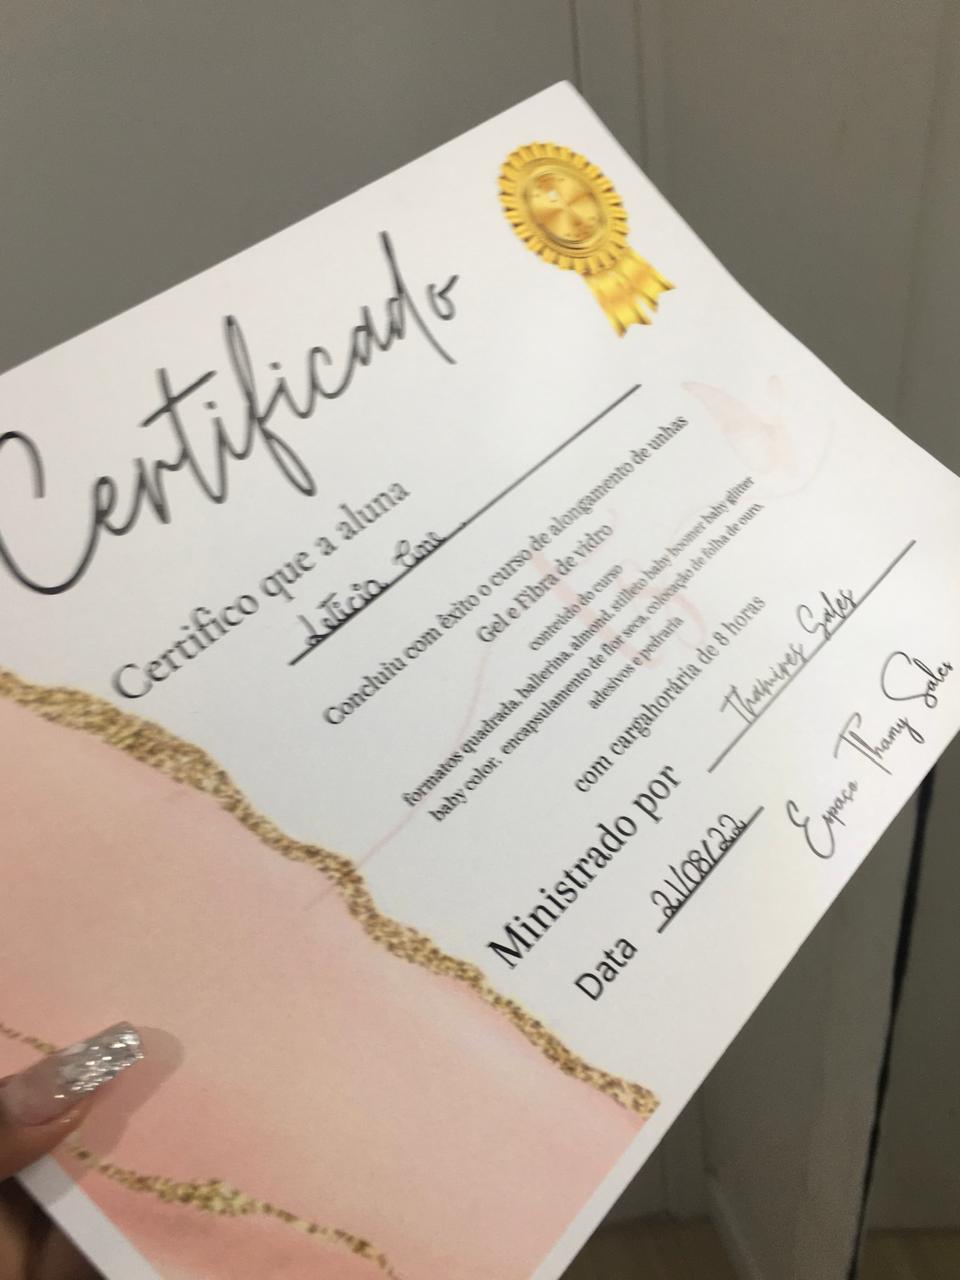 Certificado
Certifico que a aluna
Letícia
Concluiu com êxito o curso de alongamento de unhas
Gel e Fibra de vidro
conteúdo do curso
formatos quadrada, ballerina, almond, stilleto baby boomer baby glitter
baby color, encapsulamento de flor seca, colocação de folha de ouro,
adesivos e pedraria
com cargahorária de 8 horas
Ministrado por Thamires Sales
Data 21/08/22
Espaço Thamy Sales